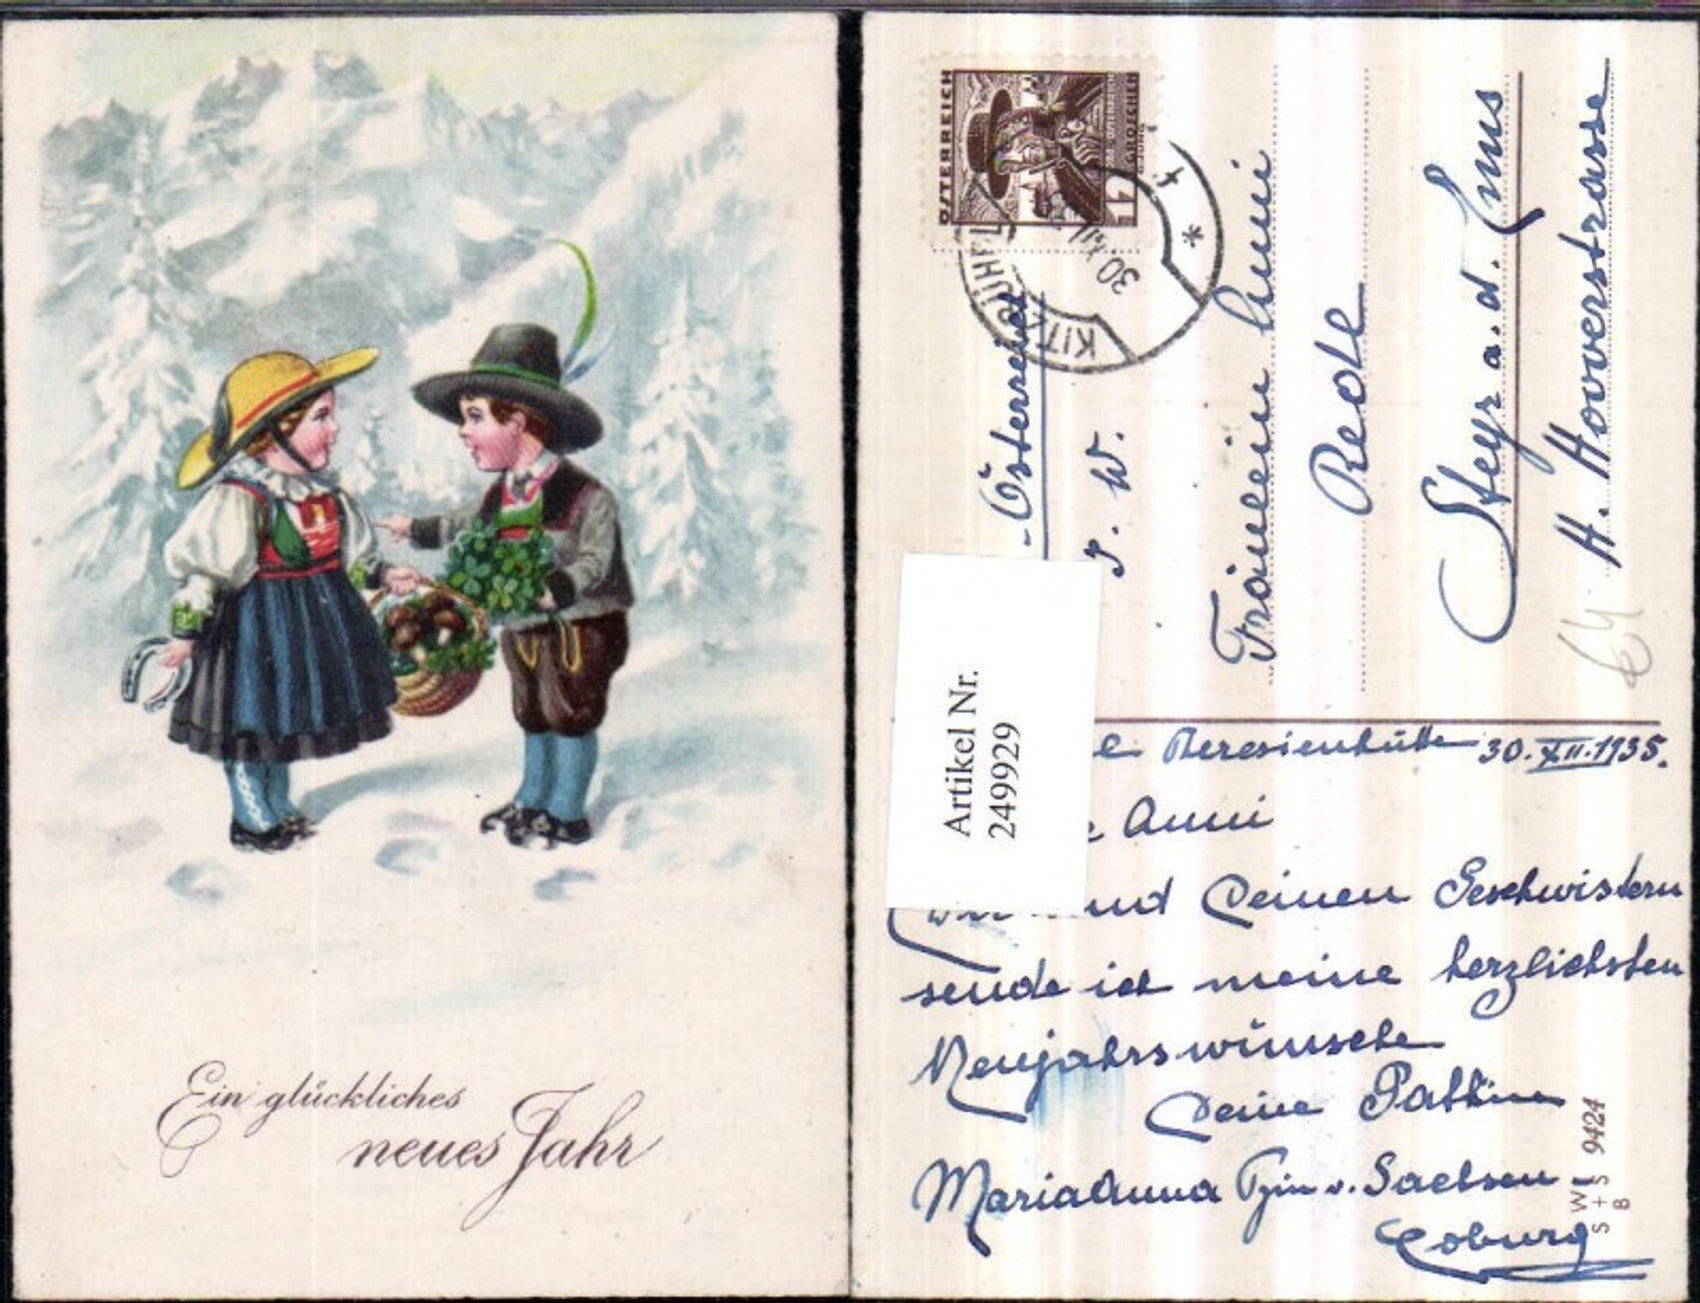 Ein glückliches
neues Jahr
ÖSTERREICH
GROSCHEN
KITZBÜHEL
30. XII.
4
*
Österreich
Fräulein Anni
Redl
Steyr a. d. Enns
H. Hooverstrasse
Artikel Nr.
2499929
Theresienhütte 30. XII. 1935.
Anni
und Deinen Geschwistern
sende ich meine herzlichsten
Neujahrswünsche
Deine Pattin
Marianna Pzin v. Sachsen
Coburg
W
S + S 9424
B